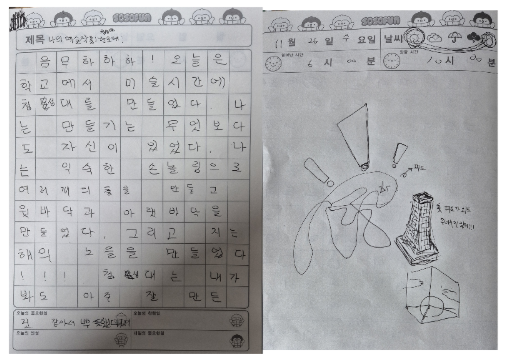 SOSOFUN
제목 나의 예술작품! 첨성대!
음므하하하! 오늘은
학교에서 미술시간에
첨성대를 만들었다. 나
는 만들기는 무엇보다
도 자신이 있었다. 나
는 익숙한 손놀림으로
여러개의 돌을 만들고
윗바닥과 아랫바닥을
만들었다. 그리고 지는
해의 노을을 만들었다
!!! 첨성대는 내가
봐도 아주 잘 만든
SOSOFUN
11월 26일 수요일 날씨
시 00분 시 00분